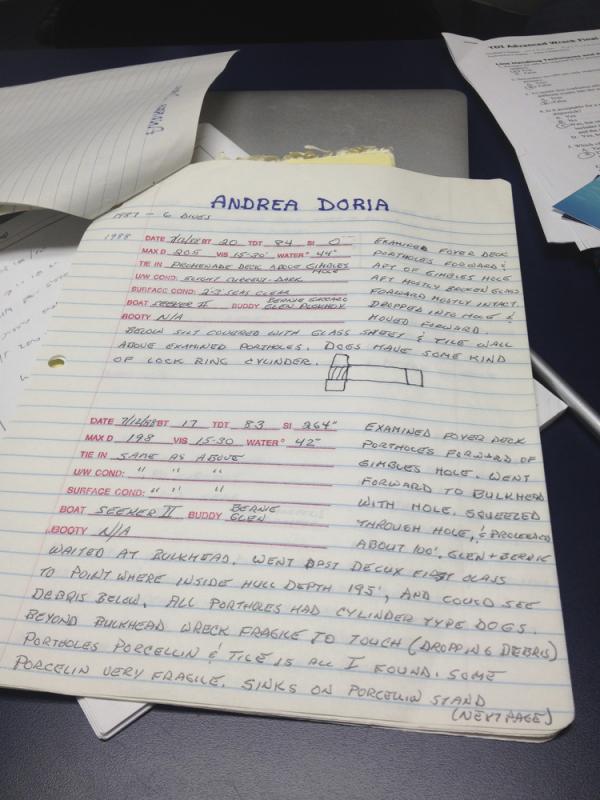 ANDREA DORIA
1987 - 6 DIVES
1988 DATE 7/12/88 BT 20 TDT 84 SI 0
MAX D 205 VIS 15-30' WATER° 44°
TIE IN PROMENADE DECK ABOVE GIMBLES HOLE
U/W COND: SLIGHT CURRENT - DARK
SURFACE COND: 2-3 SEAS CLEAR
BOAT SEEKER II BUDDY BERNIE GLEN
BOOTY N/A
EXAMINED FOYER DECK
PORTHOLES FORWARD &
AFT OF GIMBLES HOLE
AFT MOSTLY BROKEN GLASS
FORWARD MOSTLY INTACT.
DROPPED INTO HOLE &
MOVED FORWARD
BELOW SILT COVERED WITH GLASS SHEET & TILE WALL
ABOVE EXAMINED PORTHOLES. DOGS HAVE SOME KIND
OF LOCK RING CYLINDER.
DATE 7/12/88 BT 17 TDT 83 SI 264"
MAX D 198 VIS 15-30 WATER° 42°
TIE IN SAME AS ABOVE
U/W COND: " " "
SURFACE COND: " " "
BOAT SEEKER II BUDDY BERNIE GLEN
BOOTY N/A
EXAMINED FOYER DECK
PORTHOLES FORWARD OF
GIMBLES HOLE. WENT
FORWARD TO BULKHEAD
WITH HOLE. SQUEEZED
THROUGH HOLE, & PROCEEDED
ABOUT 100'. GLEN + BERNIE
WAITED AT BULKHEAD. WENT PAST DELUX FIRST CLASS
TO POINT WHERE INSIDE HULL DEPTH 195', AND COULD SEE
DEBRIS BELOW. ALL PORTHOLES HAD CYLINDER TYPE DOGS.
BEYOND BULKHEAD WRECK FRAGILE TO TOUCH (DROPPING DEBRIS)
PORTHOLES PORCELLIN & TILE IS ALL I FOUND. SOME
PORCELIN VERY FRAGILE. SINKS ON PORCELLIN STAND
(NEXT PAGE)
TDI Advanced Wreck Final
Line Handling Techniques and